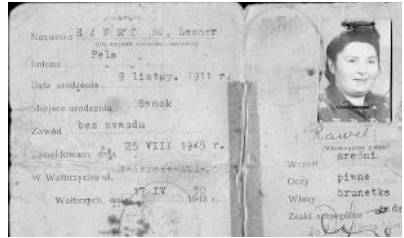 Nazwisko RAWET zd. Lesner
Imiona Pela
Data urodzenia 9 listop. 1911 r.
Miejsce urodzenia Sanok
Zawód bez zawodu
Zameldowany dnia 25 VIII 1945 r.
W Wałbrzychu ul.
17 IV 50
Wałbrzych, dnia 194
Rawet
Wzrost średni
Oczy piwne
Włosy brunetka
Znaki szczególne